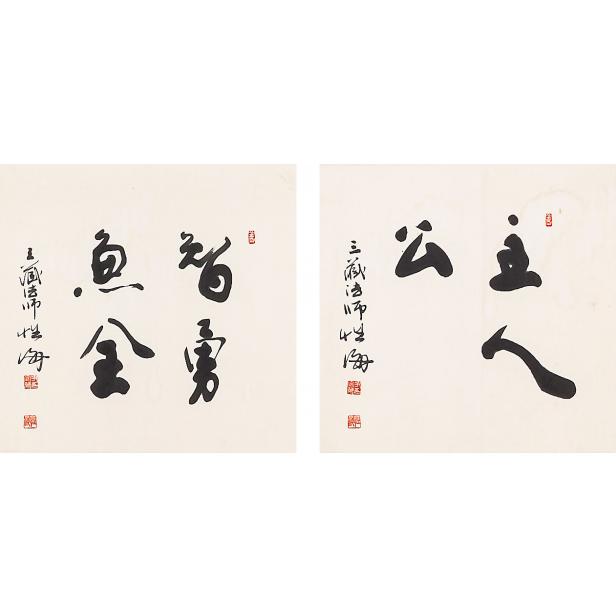 智勇
兼全
三藏法师性海
主人
公
三藏法师性海